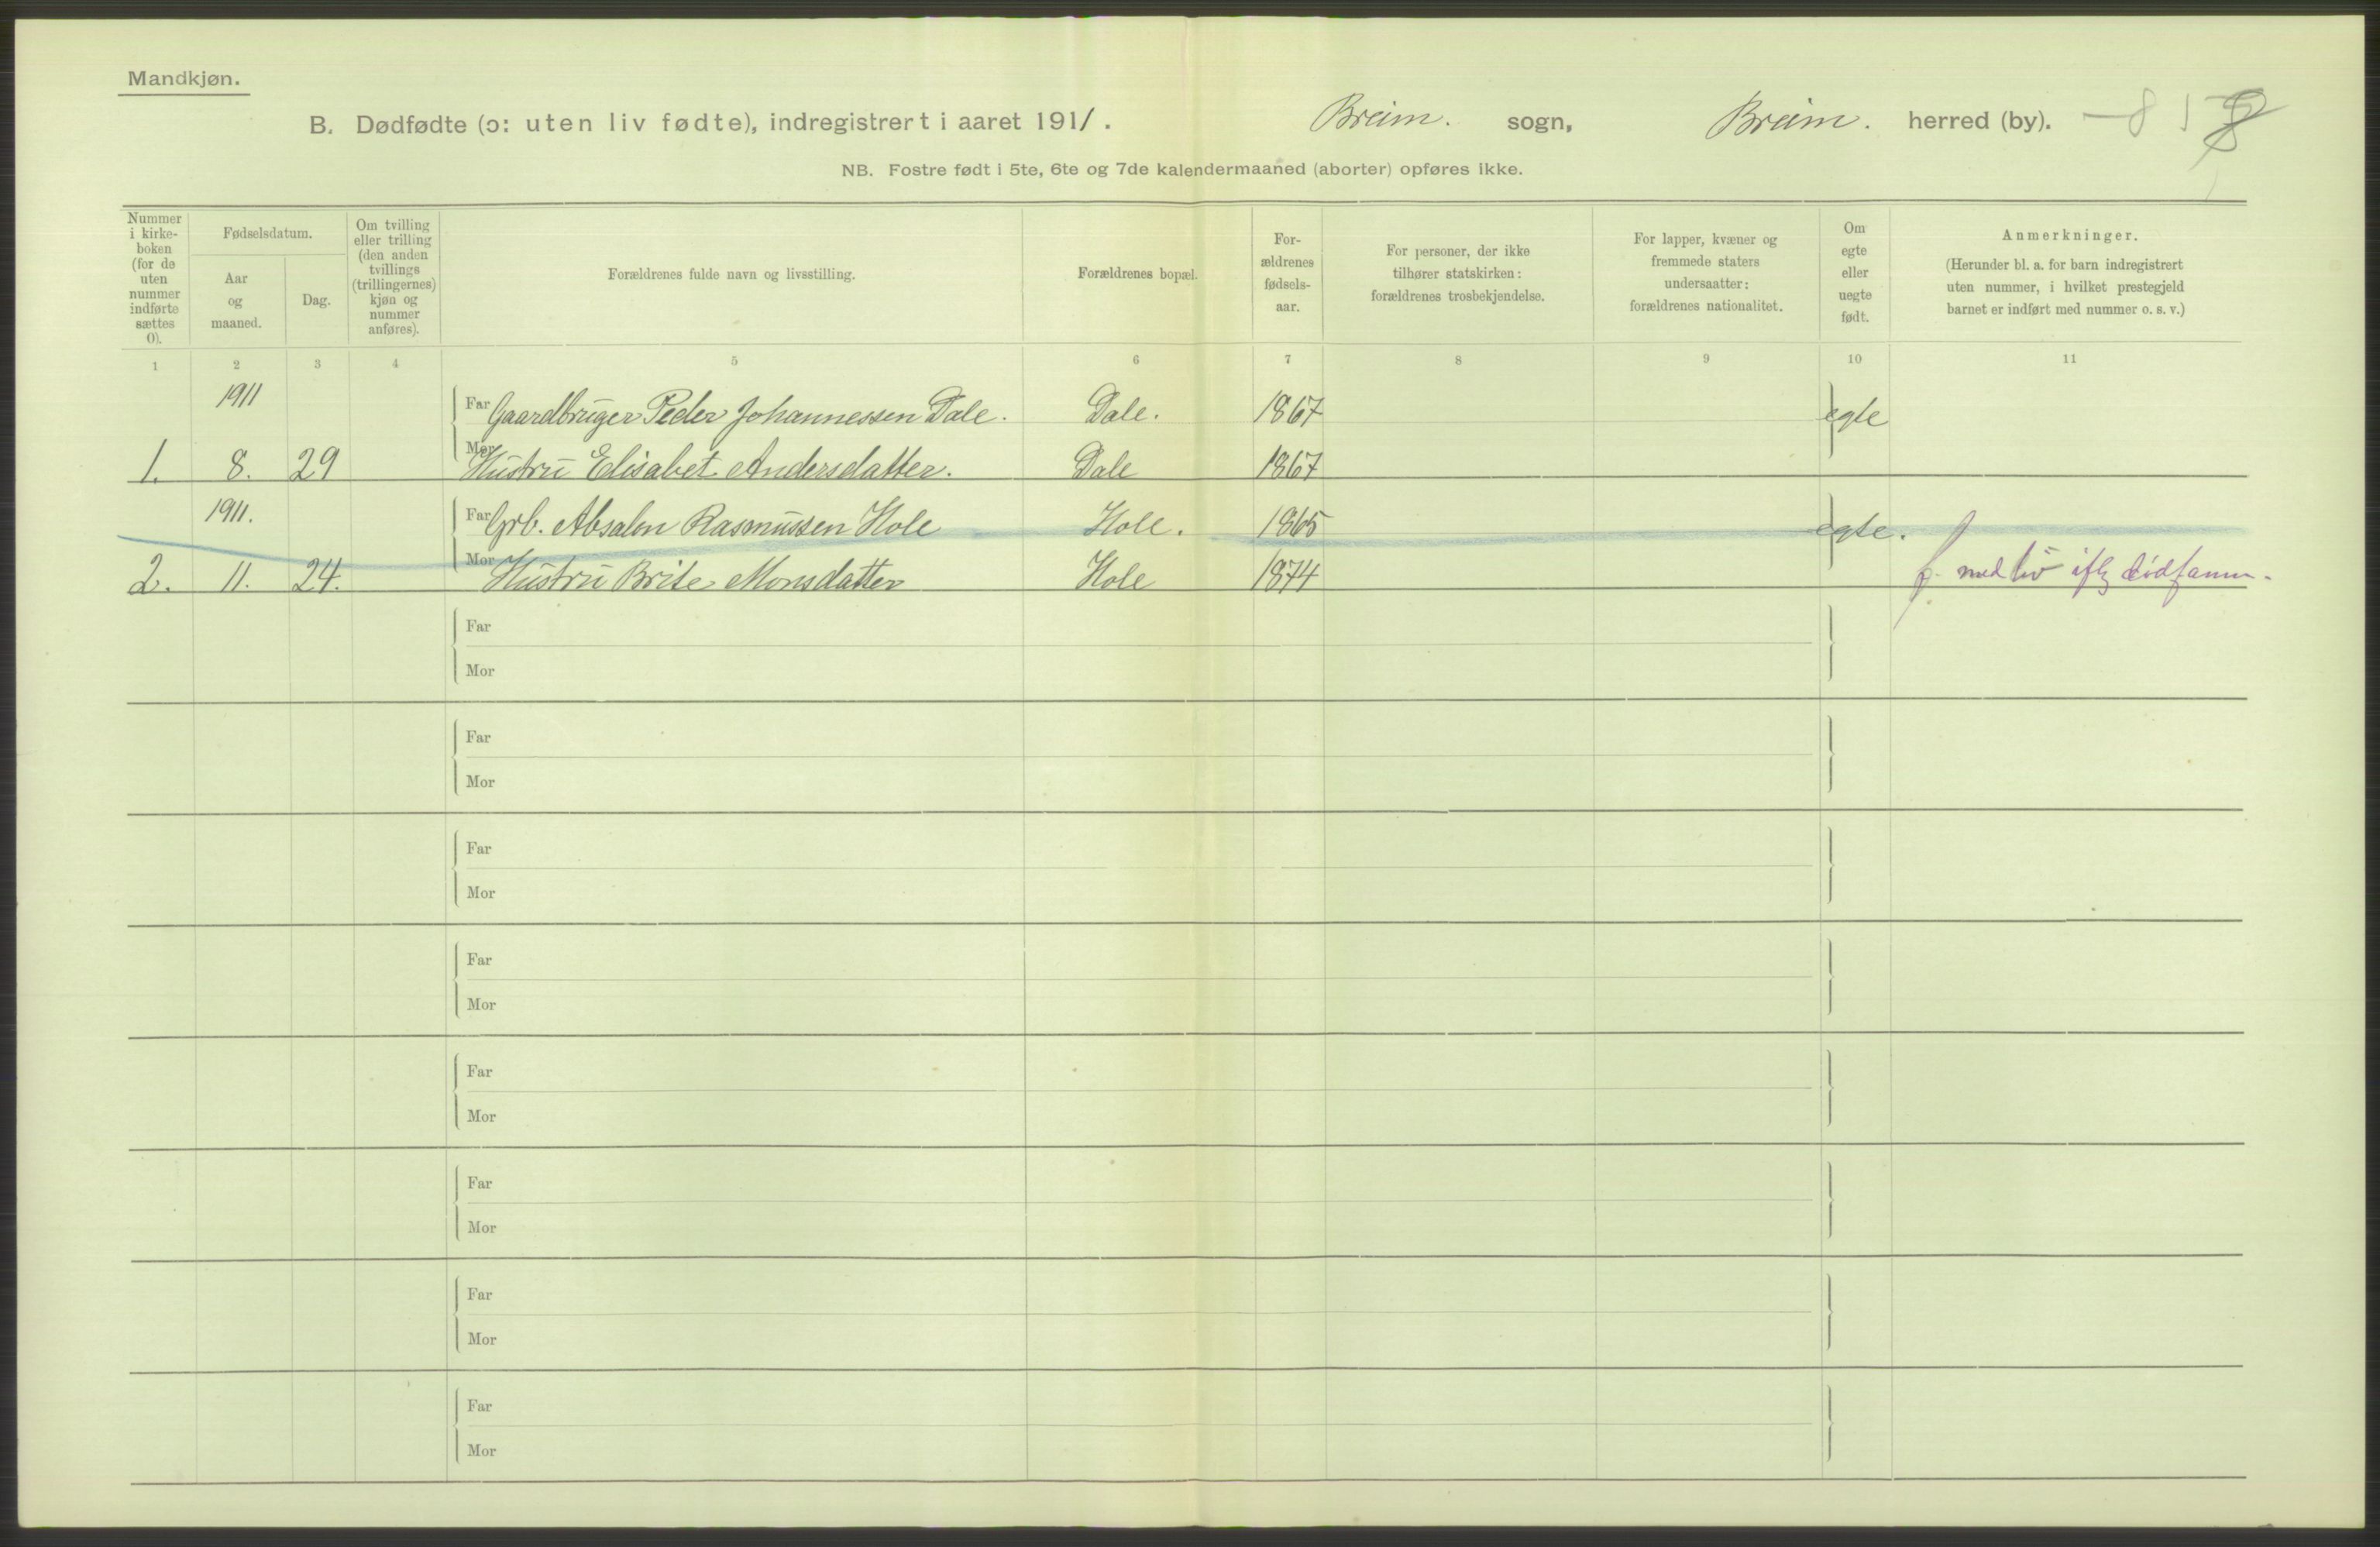 Mandkjøn.
B. Dødfødte (ɔ: uten liv fødte), indregistrert i aaret 1911. Breim. sogn, Breim. herred (by).
NB. Fostre født i 5te, 6te og 7de kalendermaaned (aborter) opføres ikke.
Nummer i kirke- boken (for de uten nummer indførte sættes 0).
Fødselsdatum.
Aar og maaned.
Dag.
Om tvilling eller trilling (den anden tvillings (trillingernes) kjøn og nummer anføres).
Forældrenes fulde navn og livsstilling.
Forældrenes bopæl.
For- ældrenes fødsels- aar.
For personer, der ikke tilhører statskirken: forældrenes trosbekjendelse.
For lapper, kvæner og fremmede staters undersaatter: forældrenes nationalitet.
Om egte eller uegte født.
Anmerkninger.
(Herunder bl. a. for barn indregistrert uten nummer, i hvilket prestegjeld barnet er indført med nummer o. s. v.)
1 2 3 4 5 6 7 8 9 10 11
1911 Far Gaardbruger Peder Johannessen Dale. Dale. 1867 egte
1. 8. 29 Mor Hustru Elisabet Andersdatter. Dale 1867
1911. Far Grb. Absalon Rasmussen Hole Hole. 1865 egte.
2. 11. 24. Mor Hustru Brite Monsdatter Hole 1874 f. med liv iflg
Far
Mor
Far
Mor
Far
Mor
Far
Mor
Far
Mor
Far
Mor
Far
Mor
Far
Mor